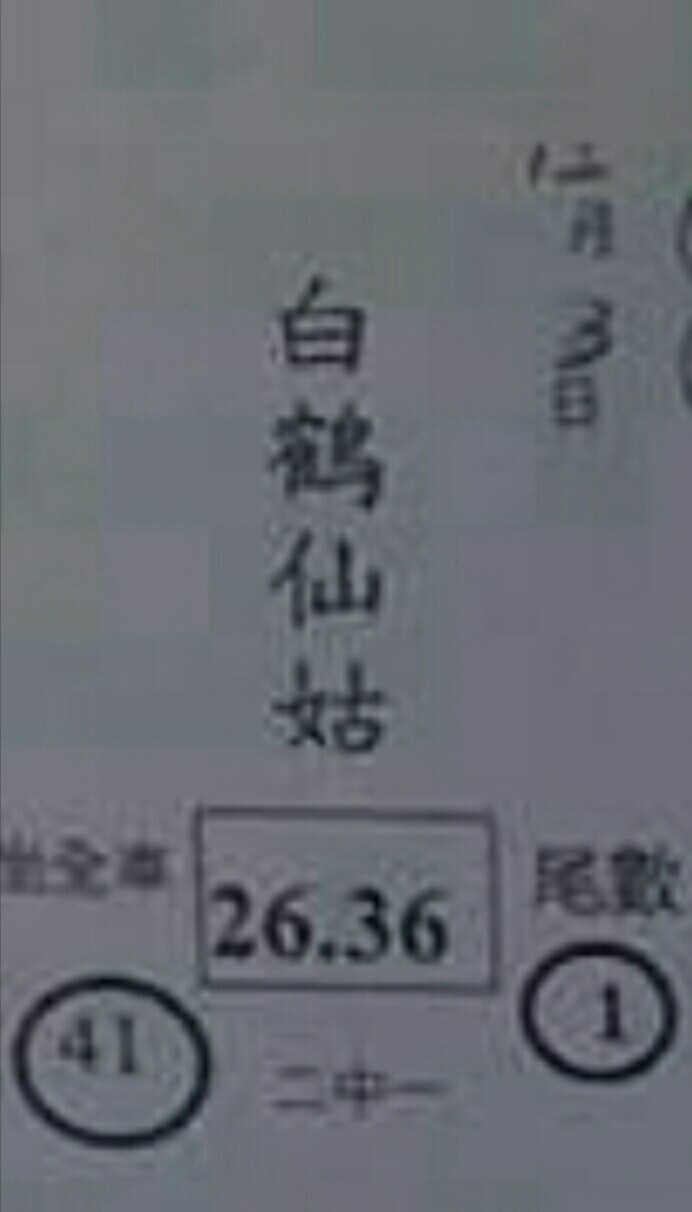 12月3日
白鶴仙姑
出全車
26.36
尾數
41
1
二中一